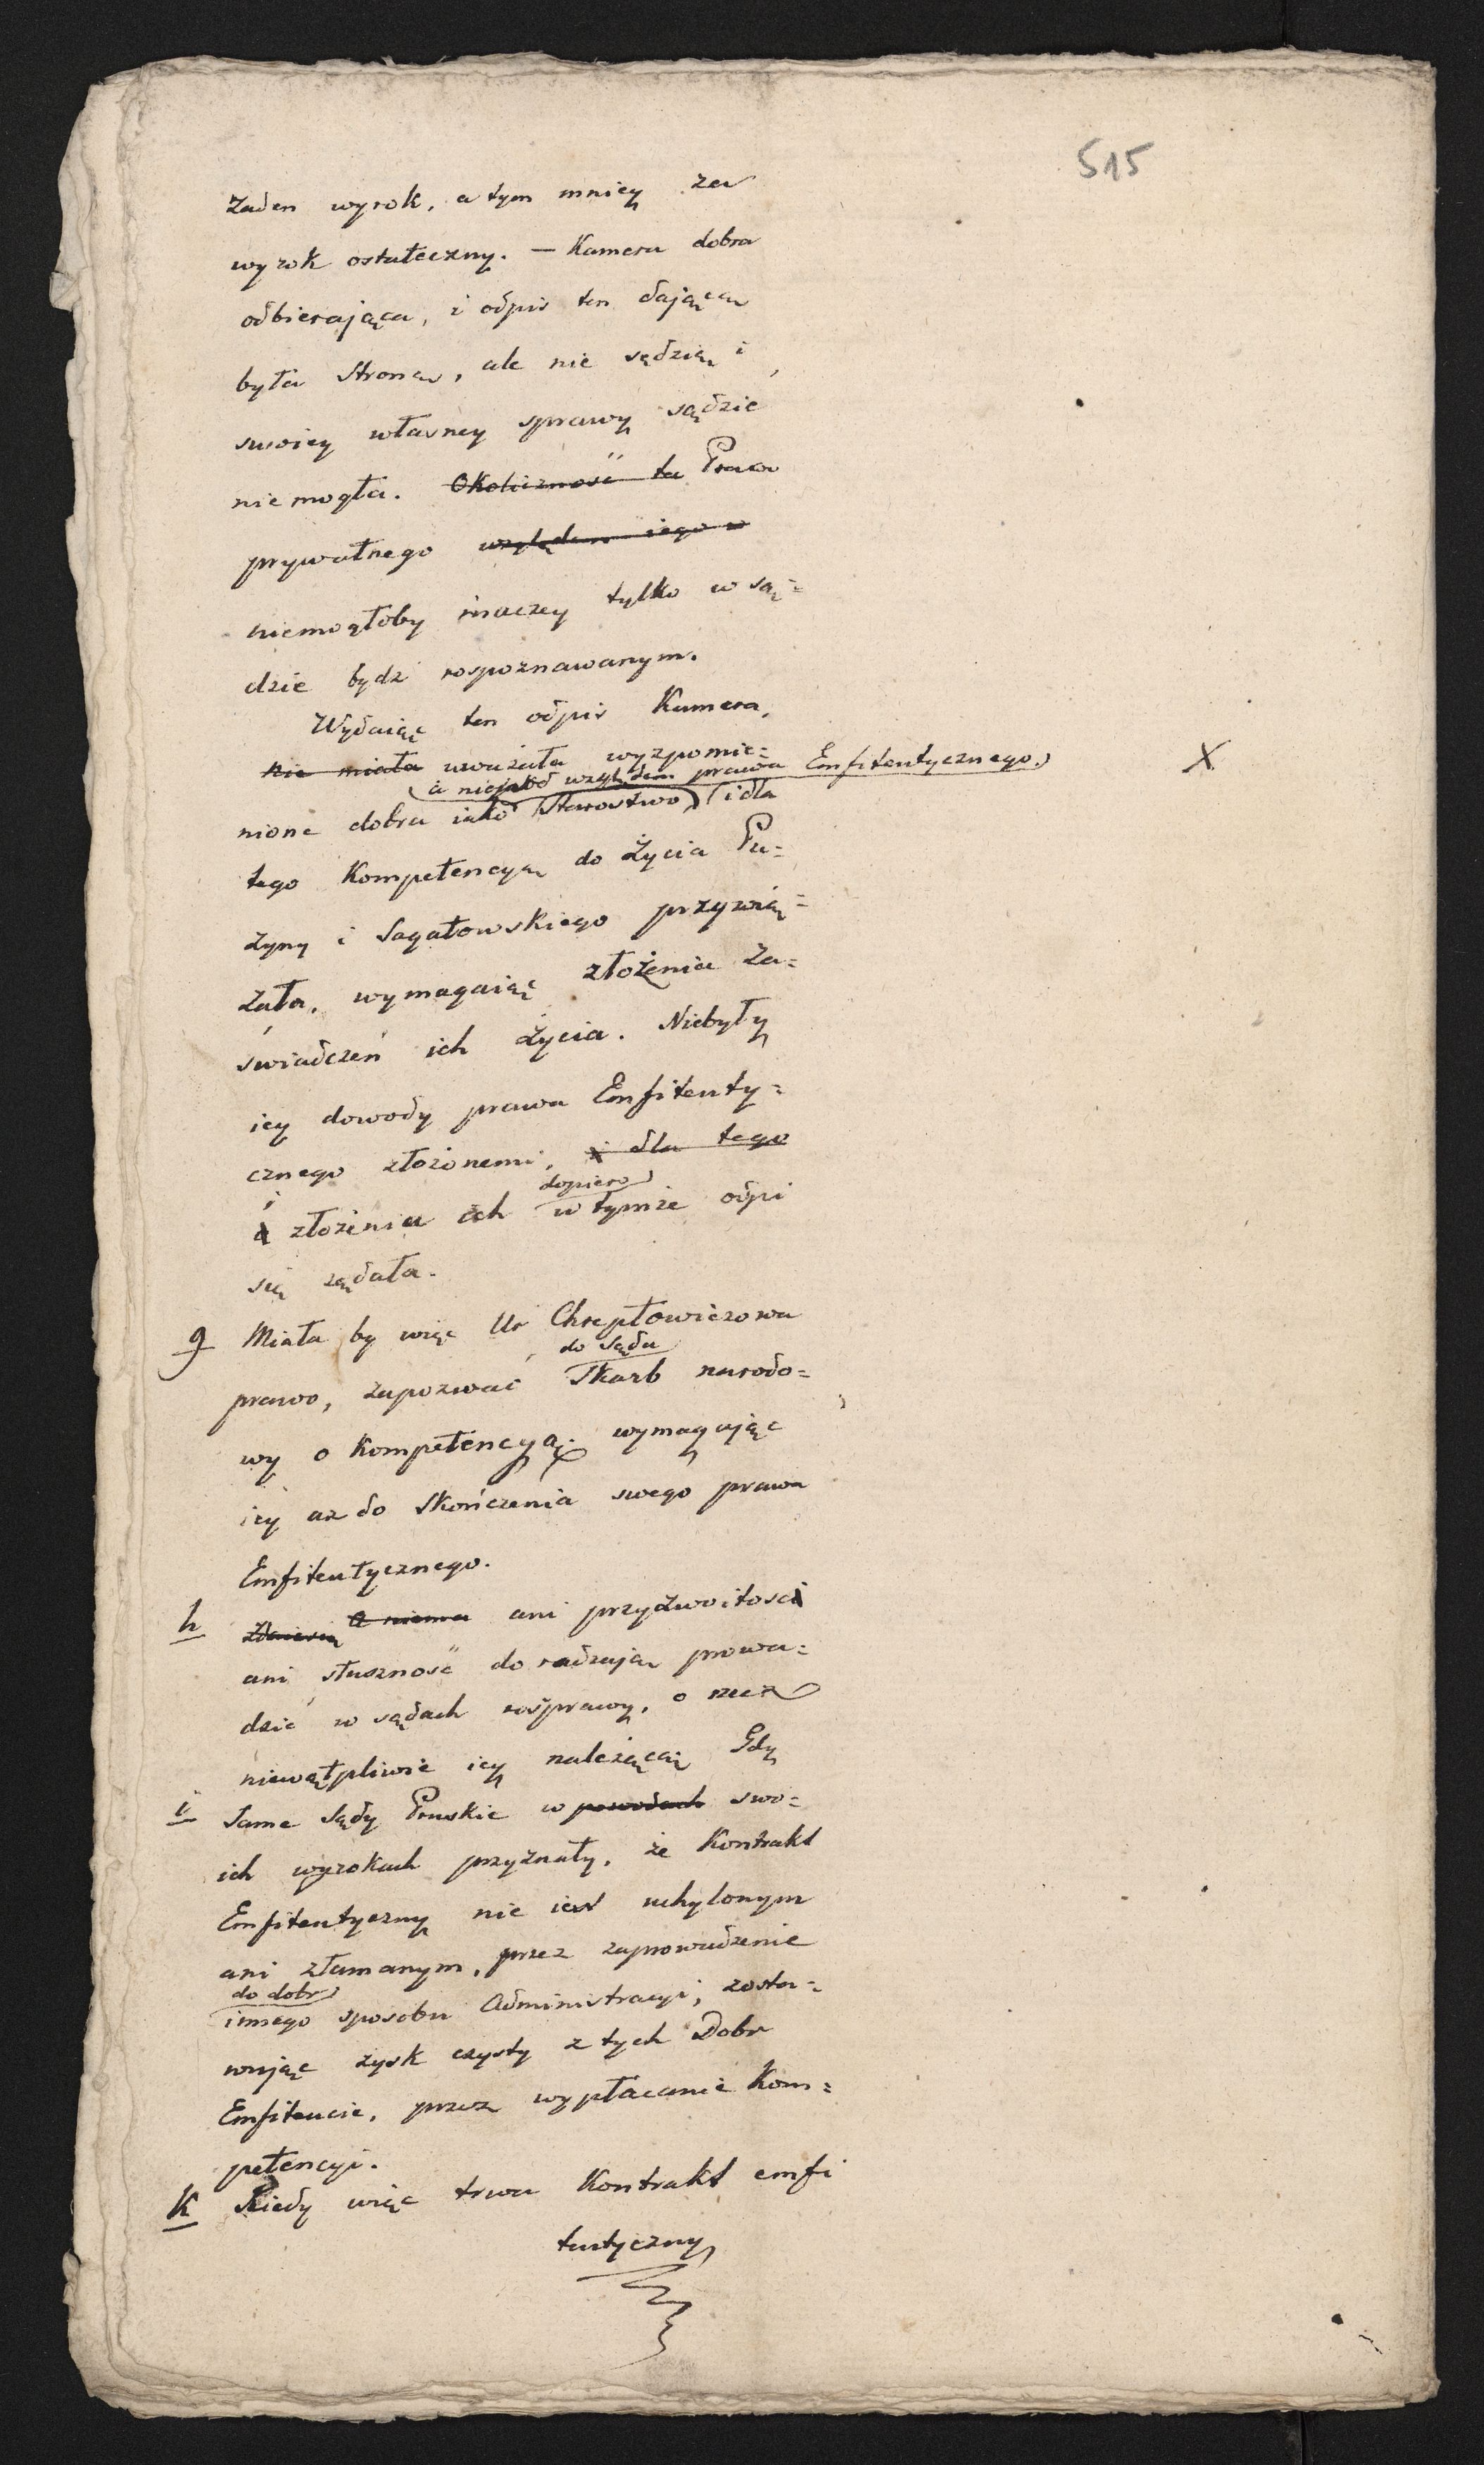 515
żaden wyrok, a tym mniey za
wyrok ostateczny. — Kamera dobra
odbierająca, i odpis ten dająca
była Stroną, ale nie sędzią i
swoiey własney sprawy sądzić
nie mogła. Okoliczność ta Prawa
prywatnego względem iego w
niemogłoby inaczey tylko w są=
dzie bydź rospoznawanym.
Wydaiąc ten odpis Kamera,
nie miała uważała wyzpomie=
a niejako względem prawa Emfiteutycznego.
X
nione dobra iako Starostwo, i dla
tego Kompetencyą do życia Pu=
zyny i Sagatowskiego przywią=
zała, wymagaiąc złożenia Za=
świadczeń ich życia. Niebyły
iey dowody prawa Emfiteuty=
cznego złożonemi, i dla tego
dopiero
i złożenia ich w tymże odpi
się żądała.
g Miała by więc Ur Chreptowiczowa
do Sądu
prawo, zapozwać Skarb narodo=
wy o Kompetencyą: wymagając
iey aż do skończenia swego prawa
Emfiteutycznego.
h a niema ani przyzwoitości
ani słuszność do radzają prowa=
dzić w sądach rosprawy, o rzecz
niewątpliwie iey należącą Gdy
i Same Sądy Pruskie w powodach swo=
ich wyrokach przyznały, że Kontrakt
Emfiteutyczny nie iest uchylonym
ani złamanym, przez zaprowadzenie
do dobr
innego sposobu Administracyi, zosta=
wując zysk czysty z tych Dobr
Emfiteucie, przez wypłacanie Kom=
petencyi.
K Kiedy więc trwa Kontrakt emfi
teutyczny